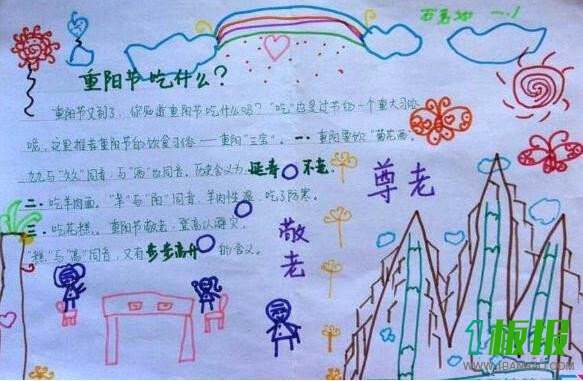 一.1
重阳节吃什么？
重阳节又到了，你知道重阳节吃什么吗？"吃"也是过节的一个重大习俗
呢，这里推荐重阳节的饮食习俗——重阳"三宝"。一.重阳要饮"菊花酒"。
九九与"久久"同音，与"酒"也同音。历史含义为延寿不老。
二.吃羊肉面，"羊"与"阳"同音，羊肉性温，吃了防寒。
三.吃花糕。重阳节敬老、登高以避灾，
"糕"与"高"同音，又有步步高升的含义。
尊老
敬老
1板报
WWW.1BANBAO.COM